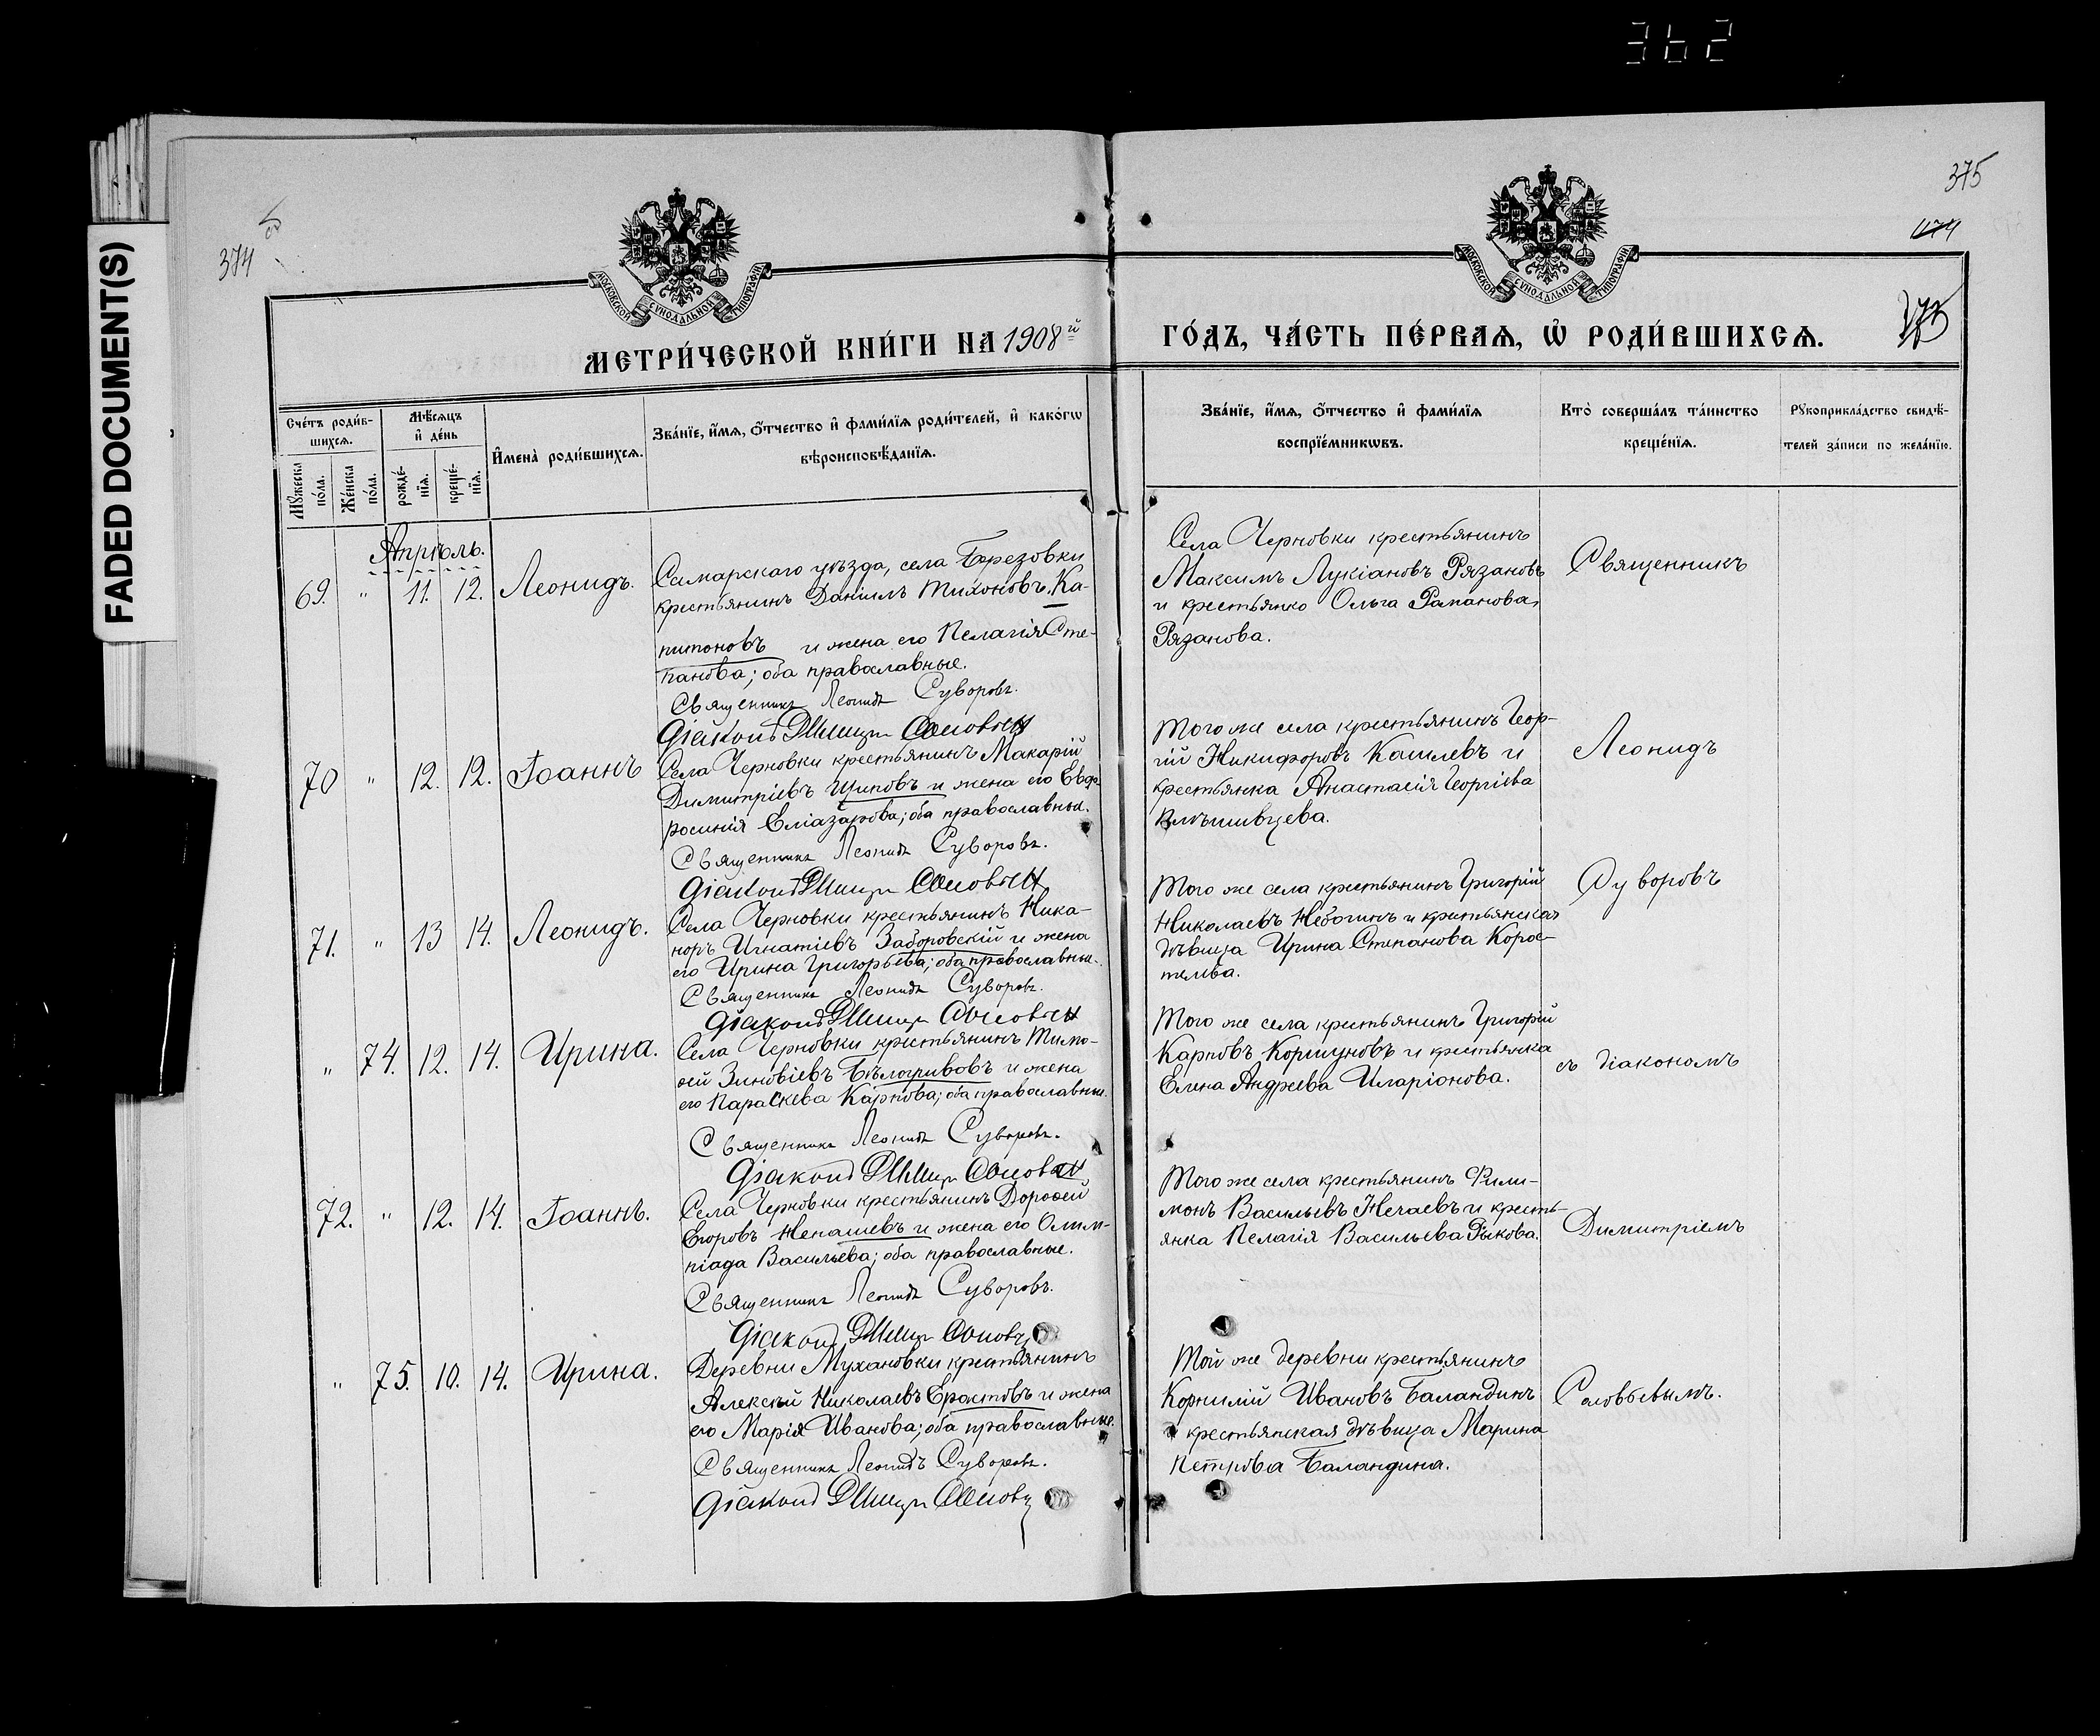 362
FADED DOCUMENT(S)
374
375
МОСКОВСКОЙ СУНОДАЛЬНОЙ ТИПОГРАФІИ
МОСКОВСКОЙ СУНОДАЛЬНОЙ ТИПОГРАФІИ
МЕТРИ́ЧЕСКОЙ КНИ́ГИ НА 1908й ГО́ДЪ, ЧА́СТЬ ПЕ́РВАЯ, Ѡ҆ РОДИ́ВШИХСЯ.
Сче́тъ роди́вшихся.
Му́жеска по́ла.
Же́нска по́ла.
Мѣ́сяцъ и҆ де́нь
рожде́нїя.
креще́нїя.
И҆мена̀ роди́вшихся.
Зва́нїе, и҆́мя, ѻ҆́тчество и҆ фами́лїя роди́телей, и҆ како́гѡ
вѣроисповѣ́данїя.
Зва́нїе, и҆́мя, ѻ҆́тчество и҆ фами́лїя
воспрїе́мникѡвъ.
Кто̀ соверша́лъ та́инство
креще́нїя.
Рꙋкоприкла́дство свидѣ́-
телей за́писи по жела́нїю.
Апрѣль.
69. " 11. 12. Леонидъ.
Самарскаго уѣзда, села Березовки
крестьянинъ Даніилъ Тихоновъ Ка-
питоновъ и жена его Пелагія Сте-
панова; оба православные.
Священникъ Леонидъ Суворовъ.
Діаконъ Димитрій Соловьевъ
Села Черновки крестьянинъ
Максимъ Лукіановъ Рязановъ
и крестьянка Ольга Романова
Рязанова.
Священникъ
70 " 12. 12. Іоаннъ
Села Черновки крестьянинъ Макарій
Димитріевъ Щиповъ и жена его Евф-
росинія Еліазарова; оба православные.
Священникъ Леонидъ Суворовъ.
Діаконъ Димитрій Соловьевъ
Того же села крестьянинъ Геор-
гій Никифоровъ и
крестьянка Анастасія Георгіева
Леонидъ
71. " 13 14. Леонидъ.
Села Черновки крестьянинъ Ника-
норъ Игнатіевъ Заборовскій и жена
его Ирина Григорьева; оба православные.
Священникъ Леонидъ Суворовъ.
Діаконъ Димитрій Соловьевъ
Того же села крестьянинъ Григорій
Николаевъ и крестьянская
дѣвица Ирина Степанова Корос-
телева.
Суворовъ
" 74. 12. 14. Ирина.
Села Черновки крестьянинъ Тимо-
ѳей Зиновіевъ Бѣлогривовъ и жена
его Параскева Карпова; оба православные.
Священникъ Леонидъ Суворовъ.
Діаконъ Димитрій Соловьевъ
Того же села крестьянинъ Григорій
Карповъ Коршуновъ и крестьянка
Елена Андреева Иларіонова.
съ діакономъ
72. " 12. 14. Іоаннъ.
Села Черновки крестьянинъ Дороѳей
Егоровъ Ненашевъ и жена его Олим-
піада Васильева; оба православные.
Священникъ Леонидъ Суворовъ.
Діаконъ Димитрій Соловьевъ
Того же села крестьянинъ Фили-
монъ Васильевъ Нечаевъ и кресть-
янка Пелагія Васильева Рыкова.
Димитріемъ
" 75. 10. 14. Ирина.
Деревни Мухановки крестьянинъ
Алексѣй Николаевъ Ерастовъ и жена
его Марія Иванова; оба православные.
Священникъ Леонидъ Суворовъ.
Діаконъ Димитрій Соловьевъ
Той же деревни крестьянинъ
Корнилій Ивановъ Баландинъ
и крестьянская дѣвица Марина
Петрова Баландина.
Соловьевымъ.